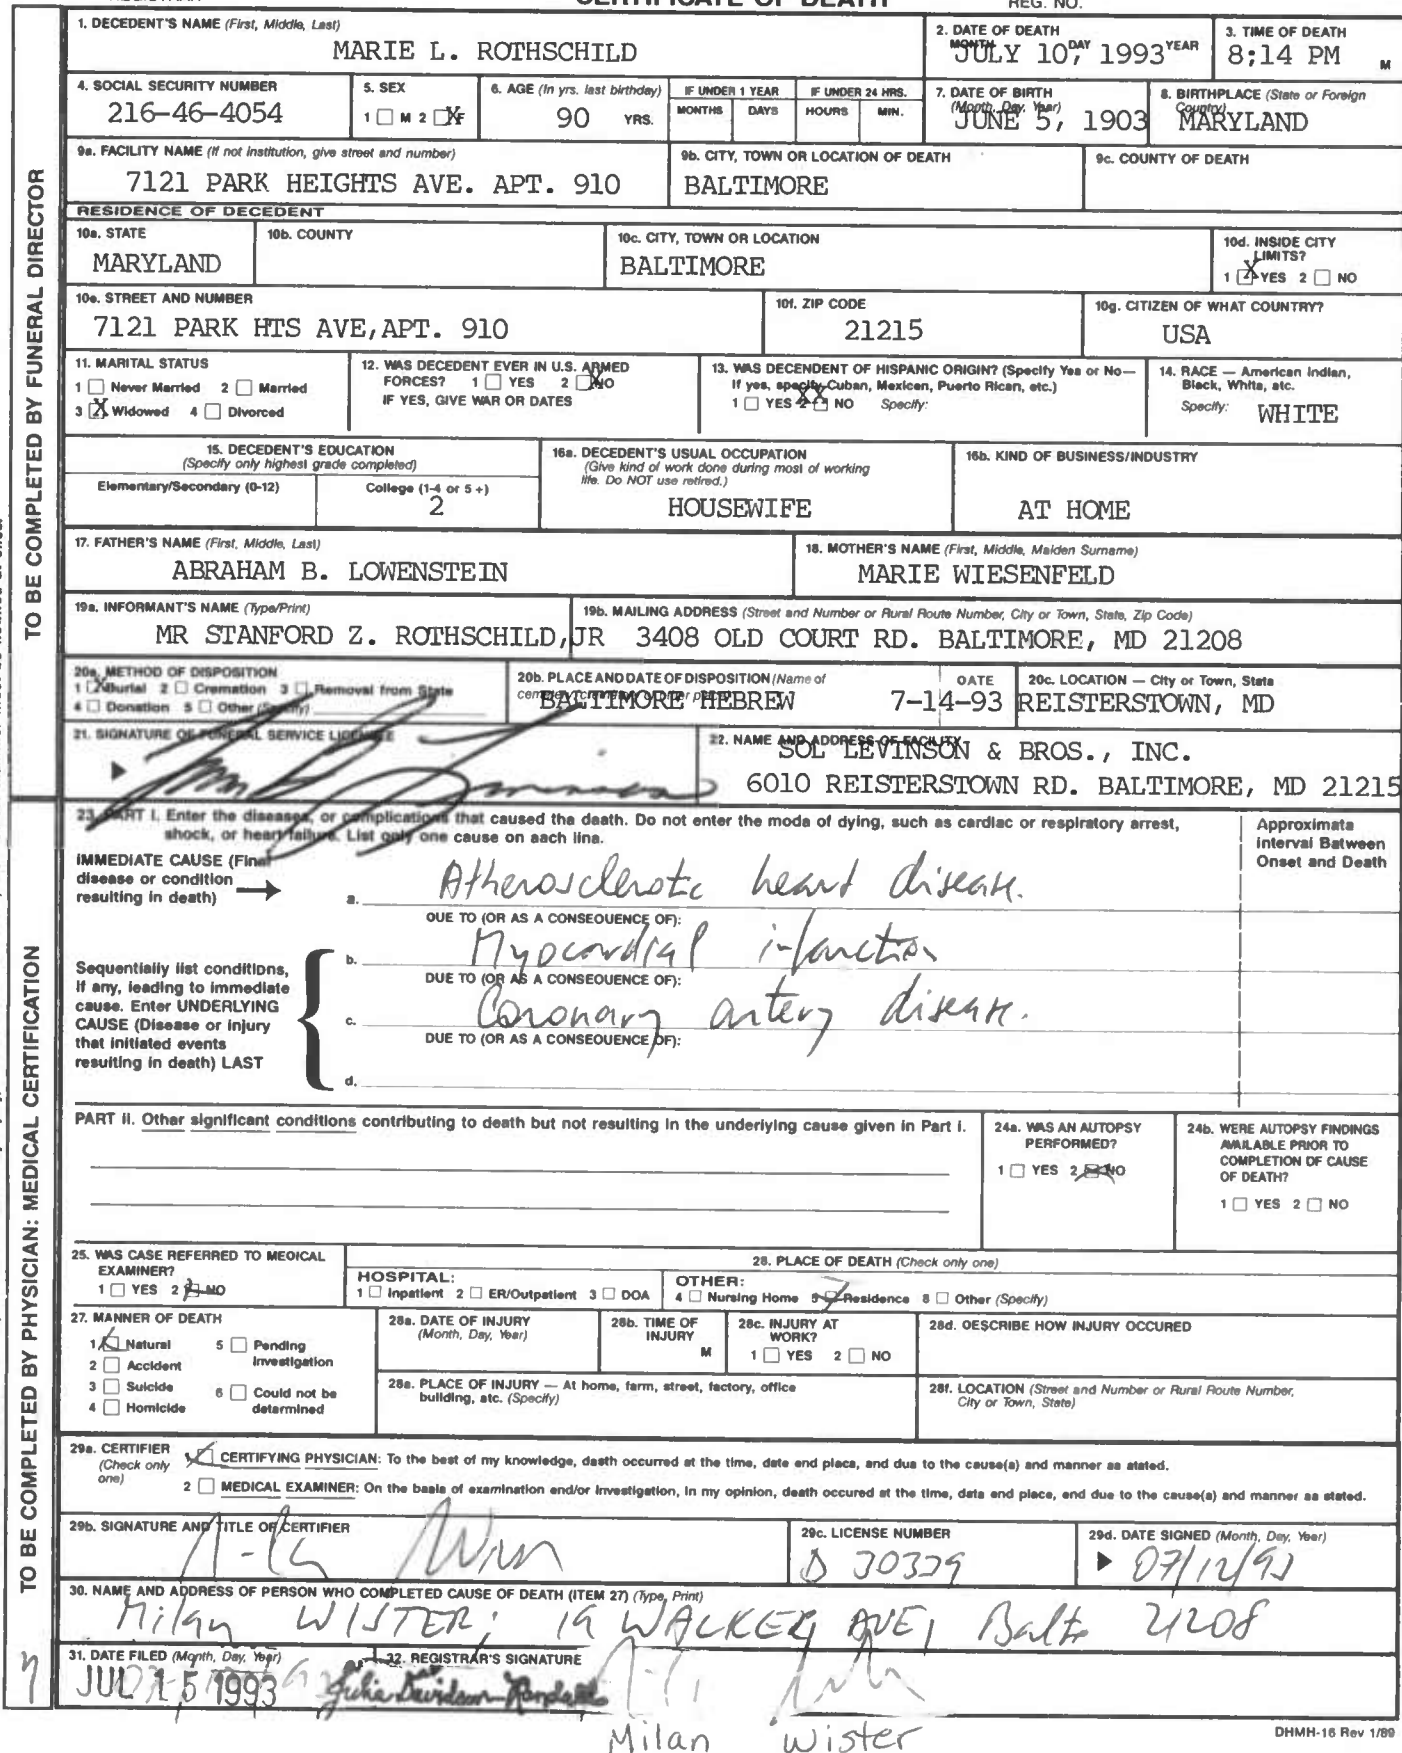 CERTIFICATE OF DEATH
REG. NO.
1. DECEDENT'S NAME (First, Middle, Last)
MARIE L. ROTHSCHILD
2. DATE OF DEATH
MONTH DAY YEAR
JULY 10, 1993
3. TIME OF DEATH
8;14 PM M
4. SOCIAL SECURITY NUMBER
216-46-4054
5. SEX
1 ☐ M 2 ☒ F
6. AGE (In yrs. last birthday)
90 YRS.
IF UNDER 1 YEAR
MONTHS DAYS
IF UNDER 24 HRS.
HOURS MIN.
7. DATE OF BIRTH
(Month, Day, Year)
JUNE 5, 1903
8. BIRTHPLACE (State or Foreign
Country)
MARYLAND
9a. FACILITY NAME (If not institution, give street and number)
7121 PARK HEIGHTS AVE. APT. 910
9b. CITY, TOWN OR LOCATION OF DEATH
BALTIMORE
9c. COUNTY OF DEATH
RESIDENCE OF DECEDENT
10a. STATE
MARYLAND
10b. COUNTY
10c. CITY, TOWN OR LOCATION
BALTIMORE
10d. INSIDE CITY
LIMITS?
1 ☒ YES 2 ☐ NO
10e. STREET AND NUMBER
7121 PARK HTS AVE,APT. 910
10f. ZIP CODE
21215
10g. CITIZEN OF WHAT COUNTRY?
USA
11. MARITAL STATUS
1 ☐ Never Married 2 ☐ Married
3 ☒ Widowed 4 ☐ Divorced
12. WAS DECEDENT EVER IN U.S. ARMED
FORCES? 1 ☐ YES 2 ☒ NO
IF YES, GIVE WAR OR DATES
13. WAS DECENDENT OF HISPANIC ORIGIN? (Specify Yes or No—
If yes, specify Cuban, Mexican, Puerto Rican, etc.)
1 ☐ YES 2 ☒ NO Specify:
14. RACE — American Indian,
Black, White, etc.
Specify: WHITE
15. DECEDENT'S EDUCATION
(Specify only highest grade completed)
Elementary/Secondary (0-12)
College (1-4 or 5+)
2
16a. DECEDENT'S USUAL OCCUPATION
(Give kind of work done during most of working
life. Do NOT use retired.)
HOUSEWIFE
16b. KIND OF BUSINESS/INDUSTRY
AT HOME
17. FATHER'S NAME (First, Middle, Last)
ABRAHAM B. LOWENSTEIN
18. MOTHER'S NAME (First, Middle, Maiden Surname)
MARIE WIESENFELD
19a. INFORMANT'S NAME (Type/Print)
MR STANFORD Z. ROTHSCHILD,JR
19b. MAILING ADDRESS (Street and Number or Rural Route Number, City or Town, State, Zip Code)
3408 OLD COURT RD. BALTIMORE, MD 21208
20a. METHOD OF DISPOSITION
1 ☒ Burial 2 ☐ Cremation 3 ☐ Removal from State
4 ☐ Donation 5 ☐ Other (Specify)
20b. PLACE AND DATE OF DISPOSITION (Name of
cemetery, crematory or other place)
BALTIMORE HEBREW
DATE
7-14-93
20c. LOCATION — City or Town, State
REISTERSTOWN, MD
21. SIGNATURE OF FUNERAL SERVICE LICENSEE
22. NAME AND ADDRESS OF FACILITY
SOL LEVINSON & BROS., INC.
6010 REISTERSTOWN RD. BALTIMORE, MD 21215
TO BE COMPLETED BY FUNERAL DIRECTOR
23. PART I. Enter the diseases, or complications that caused the death. Do not enter the mode of dying, such as cardiac or respiratory arrest,
shock, or heart failure. List only one cause on each line.
Approximate
Interval Between
Onset and Death
IMMEDIATE CAUSE (Final
disease or condition
resulting in death)
a. Atherosclerotic heart disease.
DUE TO (OR AS A CONSEQUENCE OF):
b. Myocardial infarction
DUE TO (OR AS A CONSEQUENCE OF):
c. Coronary artery disease.
DUE TO (OR AS A CONSEQUENCE OF):
d.
Sequentially list conditions,
if any, leading to immediate
cause. Enter UNDERLYING
CAUSE (Disease or injury
that initiated events
resulting in death) LAST
PART II. Other significant conditions contributing to death but not resulting in the underlying cause given in Part I.
24a. WAS AN AUTOPSY
PERFORMED?
1 ☐ YES 2 ☒ NO
24b. WERE AUTOPSY FINDINGS
AVAILABLE PRIOR TO
COMPLETION OF CAUSE
OF DEATH?
1 ☐ YES 2 ☐ NO
25. WAS CASE REFERRED TO MEDICAL
EXAMINER?
1 ☐ YES 2 ☒ NO
28. PLACE OF DEATH (Check only one)
HOSPITAL:
1 ☐ Inpatient 2 ☐ ER/Outpatient 3 ☐ DOA
OTHER:
4 ☐ Nursing Home 5 ☒ Residence 8 ☐ Other (Specify)
27. MANNER OF DEATH
1 ☒ Natural 5 ☐ Pending
Investigation
2 ☐ Accident
3 ☐ Suicide 6 ☐ Could not be
determined
4 ☐ Homicide
28a. DATE OF INJURY
(Month, Day, Year)
28b. TIME OF
INJURY
M
28c. INJURY AT
WORK?
1 ☐ YES 2 ☐ NO
28d. DESCRIBE HOW INJURY OCCURED
28e. PLACE OF INJURY — At home, farm, street, factory, office
building, etc. (Specify)
28f. LOCATION (Street and Number or Rural Route Number,
City or Town, State)
29a. CERTIFIER
(Check only
one)
1 ☒ CERTIFYING PHYSICIAN: To the best of my knowledge, death occurred at the time, date end place, and due to the cause(s) and manner as stated.
2 ☐ MEDICAL EXAMINER: On the basis of examination end/or investigation, in my opinion, death occured at the time, date end place, end due to the cause(s) and manner as stated.
29b. SIGNATURE AND TITLE OF CERTIFIER
29c. LICENSE NUMBER
D 30339
29d. DATE SIGNED (Month, Day, Year)
07/12/93
30. NAME AND ADDRESS OF PERSON WHO COMPLETED CAUSE OF DEATH (ITEM 27) (Type, Print)
Milan WISTER; 19 WALKER AVE, Balto 21208
31. DATE FILED (Month, Day, Year)
JUL 15 1993
32. REGISTRAR'S SIGNATURE
Julia Davidson-Randall
Milan Wister
TO BE COMPLETED BY PHYSICIAN: MEDICAL CERTIFICATION
DHMH-16 Rev 1/89